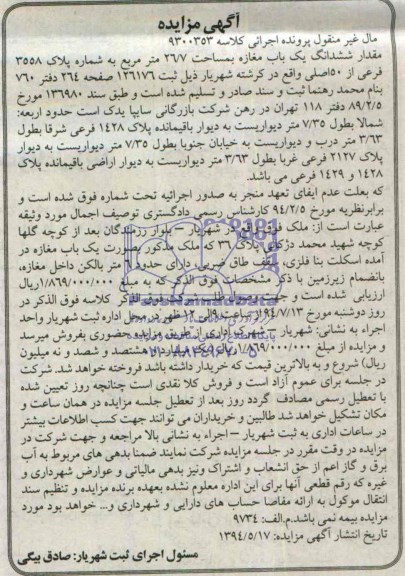 آگهی مزایده
مال غیر منقول پرونده اجرائی کلاسه ۹۳۰۰۳۵۳
مقدار ششدانگ یک باب مغازه بمساحت ۲۶/۷ متر مربع به شماره پلاک ۳۵۵۸
فرعی از ۵۰اصلی واقع در کرشته شهریار ذیل ثبت ۱۲۶۱۷۶ صفحه ۲۶۴ دفتر ۷۶۰
بنام محمد رهنما ثبت و سند صادر و تسلیم شده است و طبق سند ۱۳۶۹۸۰ مورخ
۸۹/۲/۵ دفتر ۱۱۸ تهران در رهن شرکت بازرگانی سایپا یدک است حدود اربعه:
شمالا بطول ۷/۳۵ متر دیواریست به دیوار باقیمانده پلاک ۱۴۲۸ فرعی شرقا بطول
۳/۶۳ متر درب و دیواریست به خیابان جنوبا بطول ۷/۳۵ متر دیواریست به دیوار
پلاک ۲۱۲۷ فرعی غربا بطول ۳/۶۳ متر دیواریست به دیوار اراضی باقیمانده پلاک
۱۴۲۸ و ۱۴۲۹ فرعی می باشد.
که بعلت عدم ایفای تعهد منجر به صدور اجرائیه تحت شماره فوق شده است و
برابرنظریه مورخ ۹۴/۲/۵ کارشناس رسمی دادگستری توصیف اجمال مورد وثیقه
عبارت است از: ملک فوق واقع در شهریار – بلوار رزمندگان بعد از کوچه گلها
کوچه شهید محمد دژکام پلاک ۳۹ که ملک مذکور بصورت یک باب مغازه در
آمده اسکلت بنا فلزی، سقف طاق ضربی، دارای حدود متر بالکن داخل مغازه،
بانضمام زیرزمین با ذکر مشخصات فوق الذکر که به مبلغ ۱/۸۶۹/۰۰۰/۰۰۰ریال
ارزیابی شده است و جهت وصول طلب فوق الذکر کلاسه فوق الذکر در
روز دوشنبه مورخ ۹۴/۷/۱۳ از ساعت ۹ الی ۱۲ ظهر در محل اداره ثبت شهریار واحد
اجراء به نشانی: شهریار – شهرک اداری از طریق مزایده حضوری بفروش میرسد
و مزایده از مبلغ ۱/۸۶۹/۰۰۰/۰۰۰ ریال (یک میلیارد و هشتصد و شصت و نه میلیون
ریال) شروع و به بالاترین قیمت که خریدار داشته باشد فروخته خواهد شد. شرکت
در جلسه برای عموم آزاد است و فروش کلا نقدی است چنانچه روز تعیین شده
با تعطیل رسمی مصادف گردد روز بعد از تعطیل جلسه مزایده در همان ساعت و
مکان تشکیل خواهد شد طالبین و خریداران می توانند جهت کسب اطلاعات بیشتر
در ساعات اداری به ثبت شهریار – اجراء به نشانی بالا مراجعه و جهت شرکت در
مزایده در وقت مقرر در جلسه مزایده شرکت نمایند ضمنا بدهی های مربوط به آب
برق و گاز اعم از حق انشعاب و اشتراک ونیز بدهی مالیاتی و عوارض شهرداری و
غیره که رقم قطعی آنها برای این اداره معلوم نشده بعهده برنده مزایده و تنظیم سند
انتقال موکول به ارائه مفاصا حساب های دارایی و شهرداری و... خواهد بود مورد
مزایده بیمه نمی باشد.م.الف: ۹۷۳۴
تاریخ انتشار آگهی مزایده: ۱۳۹۴/۵/۱۷
مسئول اجرای ثبت شهریار: صادق بیگی